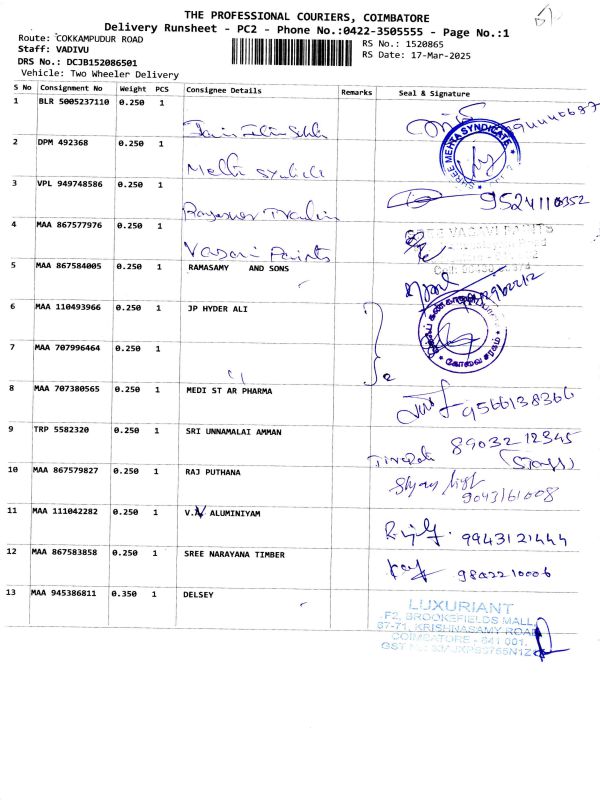 THE PROFESSIONAL COURIERS, COIMBATORE
Delivery Runsheet - PC2 - Phone No.:0422-3505555 - Page No.:1
Route: COKKAMPUDUR ROAD
RS No.: 1520865
Staff: VADIVU
RS Date: 17-Mar-2025
DRS No.: DCJB152086501
Vehicle: Two Wheeler Delivery
S No Consignment No Weight PCS Consignee Details Remarks Seal & Signature
1 BLR 5005237110 0.250 1
2 DPM 492368 0.250 1
SHREE MEHTA SYNDICATE
3 VPL 949748586 0.250 1 9524110352
4 MAA 867577976 0.250 1 Vasavi Paints
5 MAA 867584005 0.250 1 RAMASAMY AND SONS
6 MAA 110493966 0.250 1 JP HYDER ALI
7 MAA 707996464 0.250 1
2
8 MAA 707380565 0.250 1 MEDI ST AR PHARMA 9566138366
9 TRP 5582320 0.250 1 SRI UNNAMALAI AMMAN 8903212345
(Staff)
10 MAA 867579827 0.250 1 RAJ PUTHANA
9043161008
11 MAA 111042282 0.250 1 ALUMINIYAM 9943121444
12 MAA 867583858 0.250 1 SREE NARAYANA TIMBER 9802210006
13 MAA 945386811 0.350 1 DELSEY
LUXURIANT
F2, BROOKEFIELDS MALL,
67-71, KRISHNASAMY ROAD
COIMBATORE - 641 001.